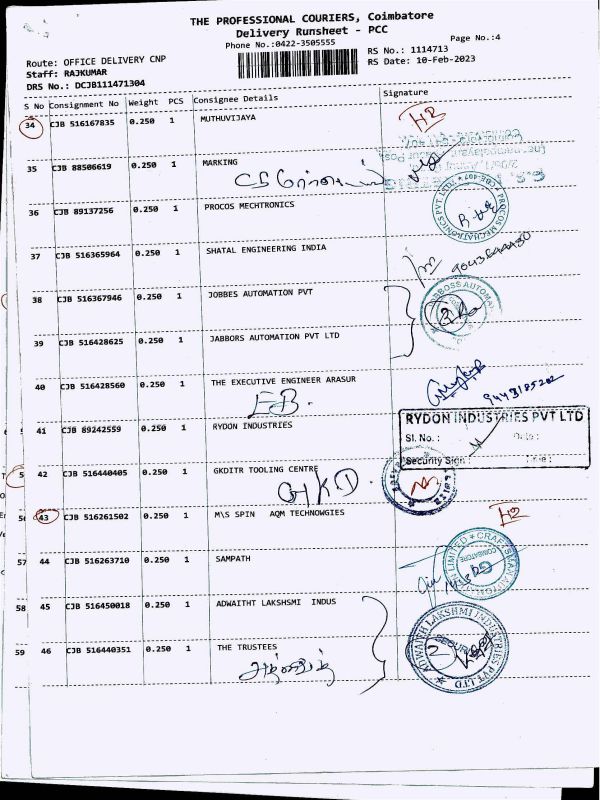 THE PROFESSIONAL COURIERS, Coimbatore
Delivery Runsheet - PCC
Phone No.:0422-3505555
Page No.:4
Route: OFFICE DELIVERY CNP
RS No.: 1114713
Staff: RAJKUMAR
RS Date: 10-Feb-2023
DRS No.: DCJB111471304
S No Consignment No Weight PCS Consignee Details Signature
34 CJB 516167835 0.250 1 MUTHUVIJAYA
H2
35 CJB 88506619 0.250 1 MARKING
36 CJB 89137256 0.250 1 PROCOS MECHTRONICS
PROCOS MECHATRONICS PVT LTD
37 CJB 516365964 0.250 1 SHATAL ENGINEERING INDIA
38 CJB 516367946 0.250 1 JOBBES AUTOMATION PVT
39 CJB 516428625 0.250 1 JABBORS AUTOMATION PVT LTD
40 CJB 516428560 0.250 1 THE EXECUTIVE ENGINEER ARASUR
EB.
9443185202
41 CJB 89242559 0.250 1 RYDON INDUSTRIES
RYDON INDUSTRIES PVT LTD
Sl. No. : Date :
Security Sign : Time :
5 42 CJB 516440405 0.250 1 GKDITR TOOLING CENTRE
GKD.
56 43 CJB 516261502 0.250 1 M\S SPIN AQM TECHNOWGIES
H2
57 44 CJB 516263710 0.250 1 SAMPATH
58 45 CJB 516450018 0.250 1 ADWAITHT LAKSHSMI INDUS
ADWAITH LAKSHMI INDUSTRIES PVT LTD
59 46 CJB 516440351 0.250 1 THE TRUSTEES